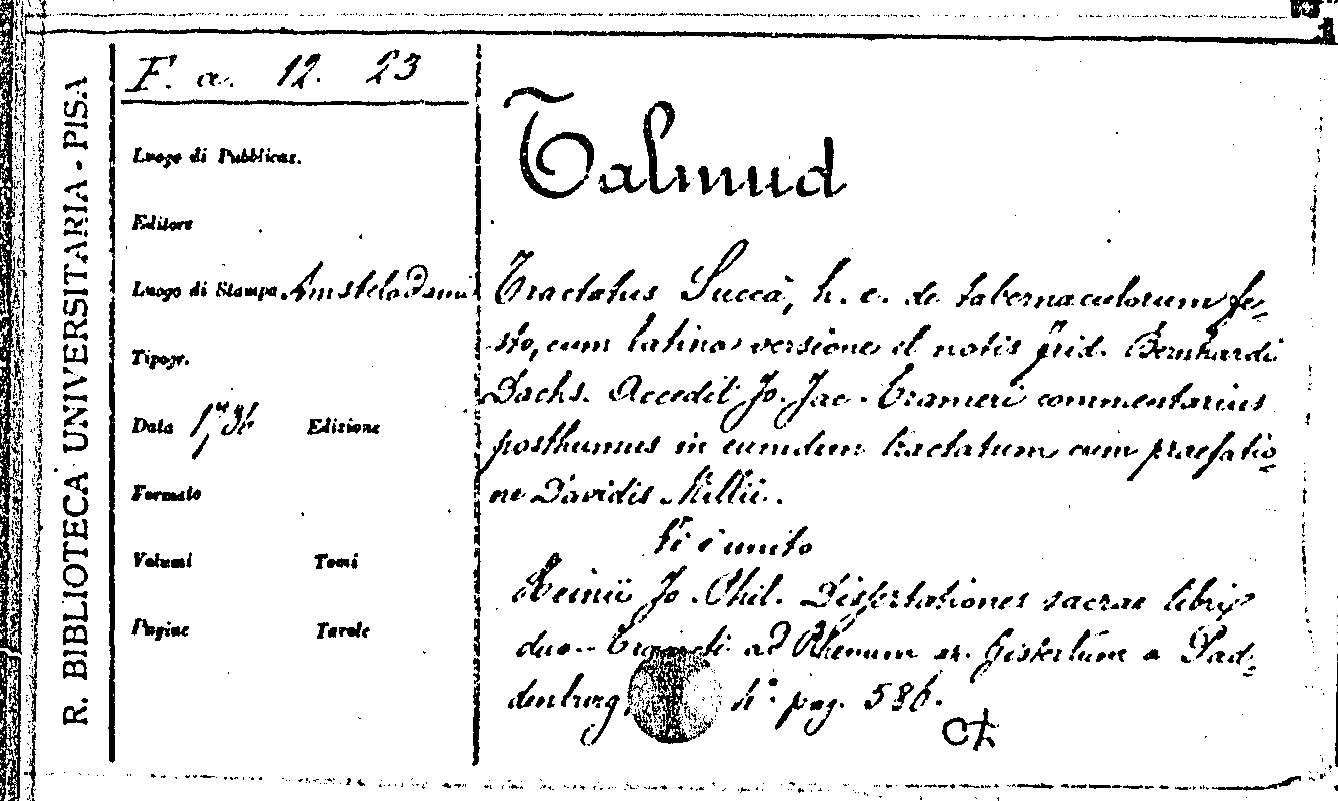 R. BIBLIOTECA UNIVERSITARIA - PISA
F. a. 12. 23
Luogo di Pubblicaz.
Editore
Luogo di Stampa Amstelodami
Tipogr.
Data 1736 Edizione
Formato
Volumi Tomi
Pagine Tavole
Talmud
Tractatus Succà, h. e. de tabernaculorum fe-
sto, cum latina versione et notis Frid. Bernhardi
Dachs. Accedit Jo. Jac. Crameri commentarius
posthumus in eumdem tractatum cum praefatio-
ne Davidis Millii.
Vi è unito
Heinii Jo. Phil. Dissertationes sacrae libri
duo. ad Rhenum ex a Pad-
denburg, 4° pag. 586.